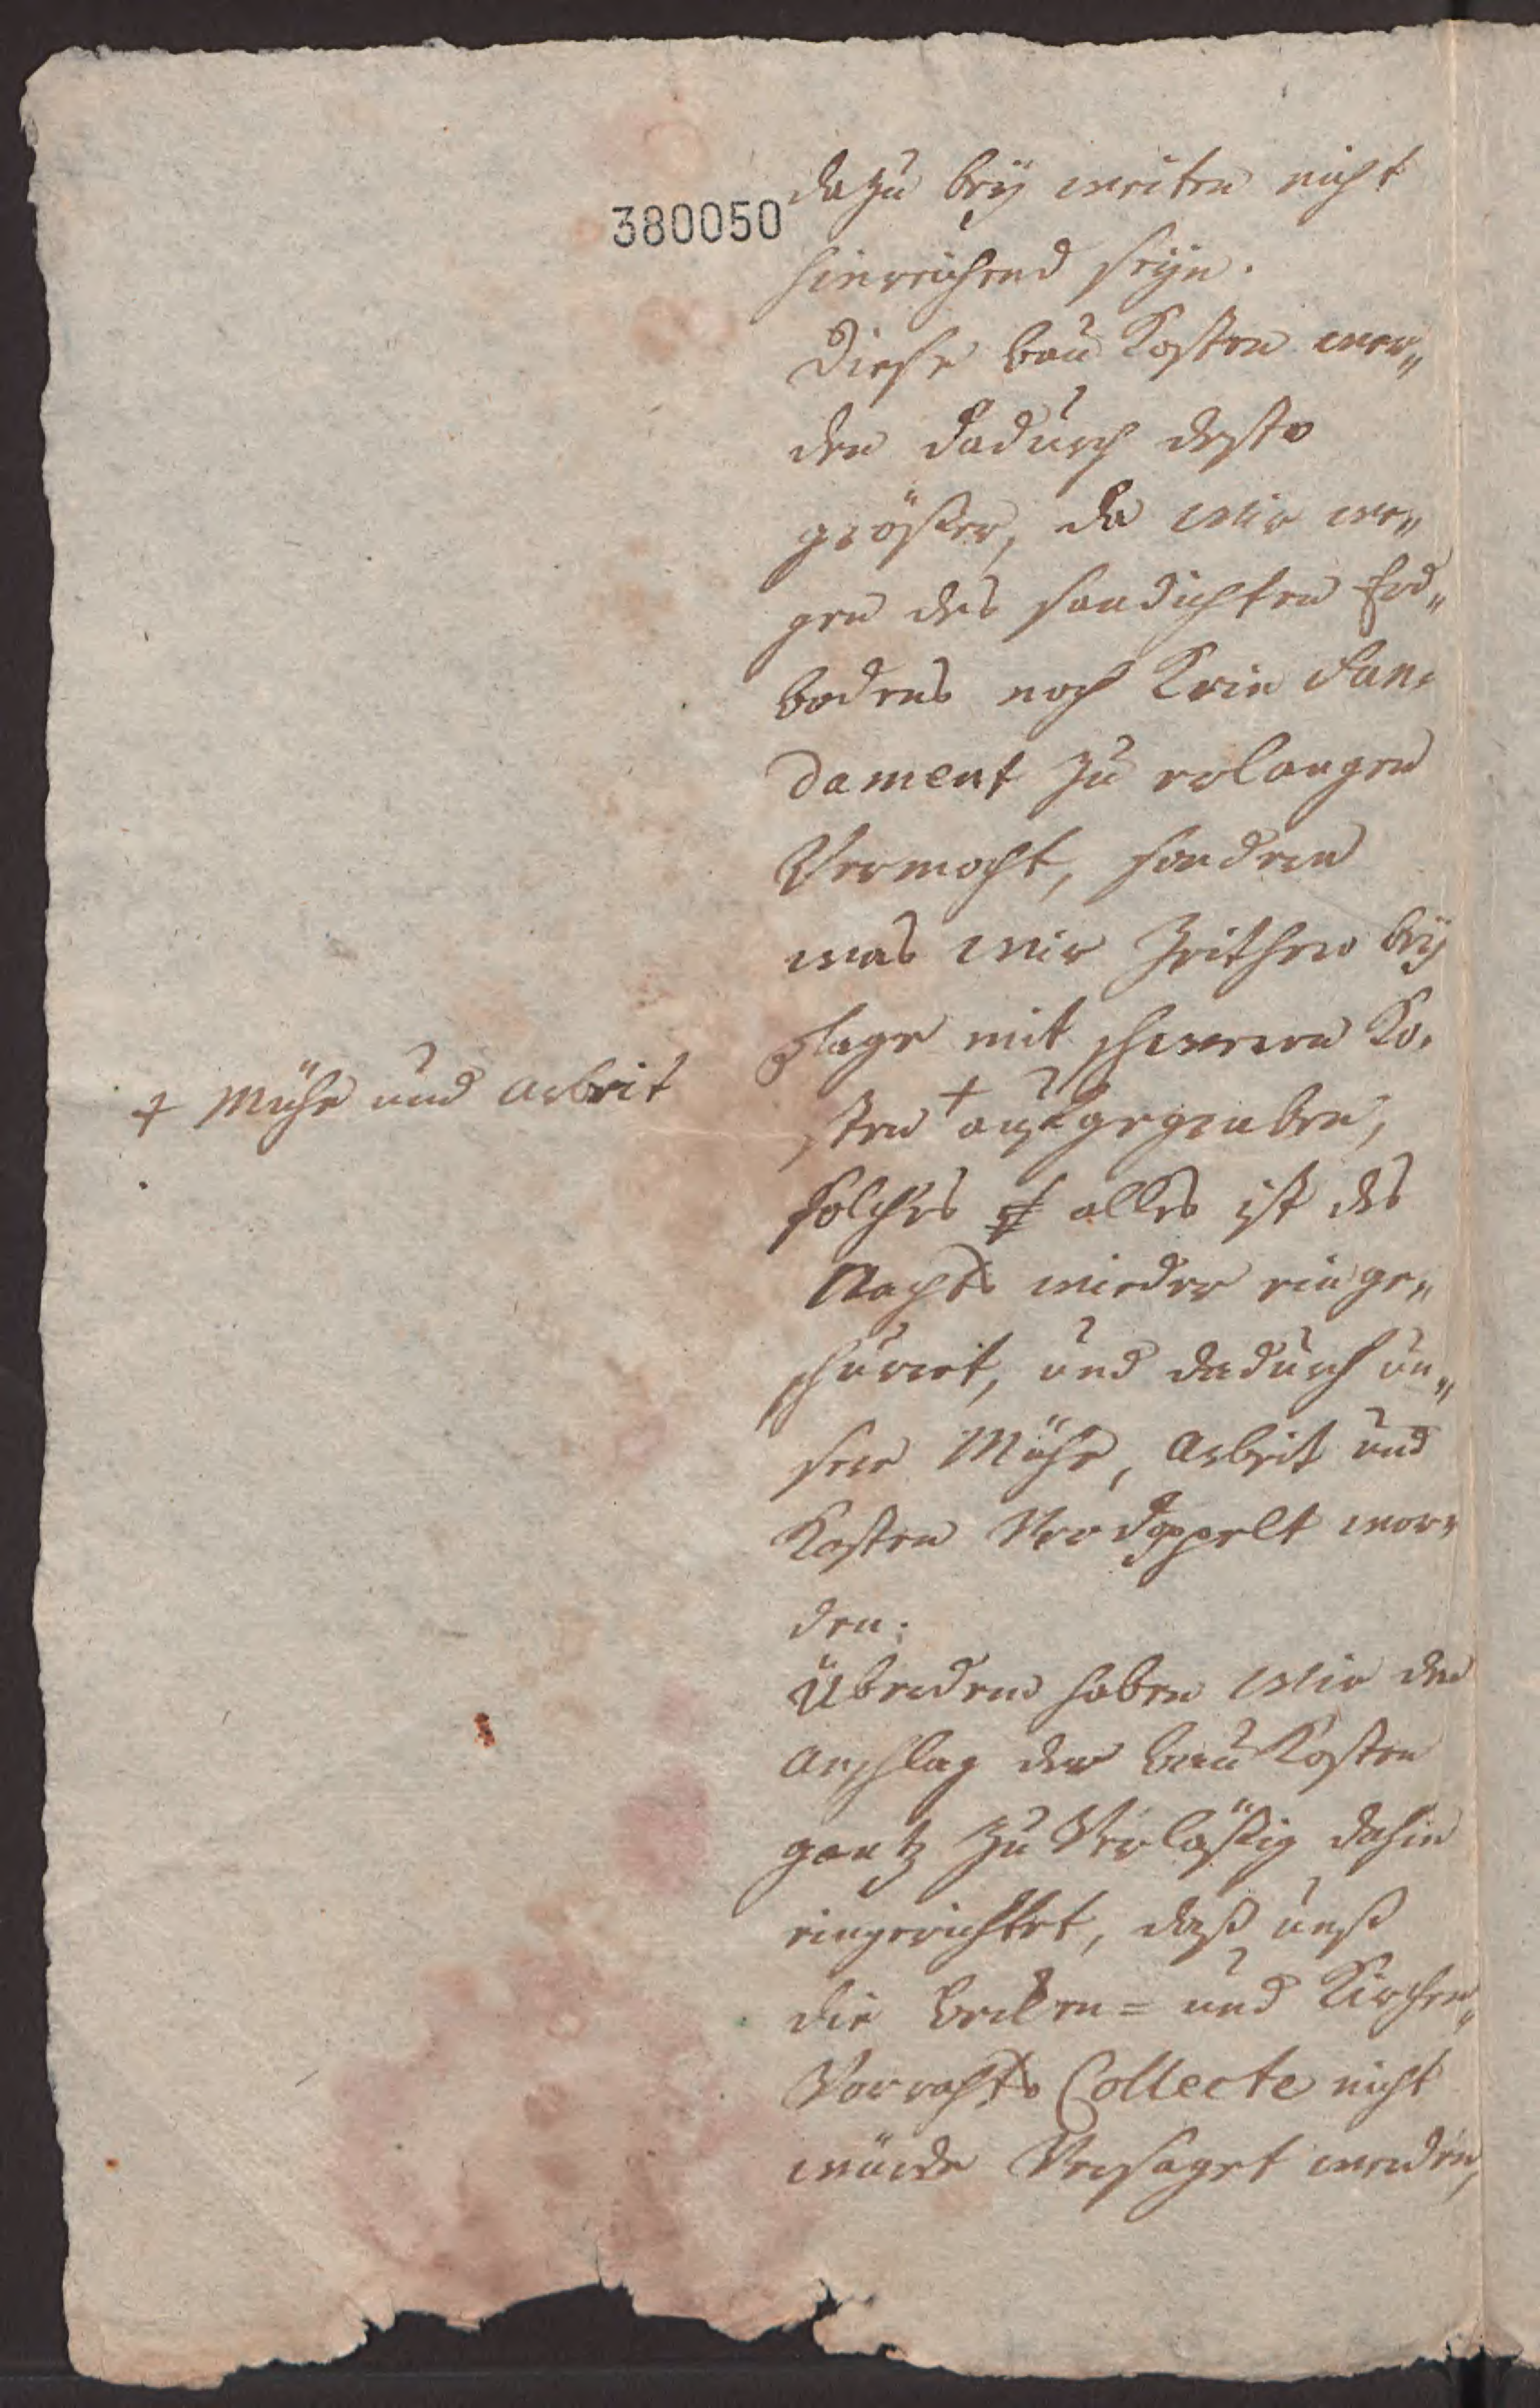 380050
dazu bey weiten nicht
hinreichend seyn.
Diese bau Kosten wer„
den dadurch desto
größer, da wir we„
gen des sandichten Erd„
bodens noch Kein Fun„
dament zu erlangen
Vermocht, sondern
was wir Zeither bey
Tage mit schweren Ko„
sten + ausgegraben,
+ Mühe und Arbeit
solches alles ist des
Nachts wieder einge„
schurret, und dadurch un„
sere Mühe, Arbeit und
Kosten Verdoppelt wor„
den.
Überdem haben wir den
Anschlag der bau Kosten
gantz zu Verläßig dahin
eingerichtet, daß unß
die Becken= und Kirchen„
Vorrahts Collecte nicht
würde Versaget werden,